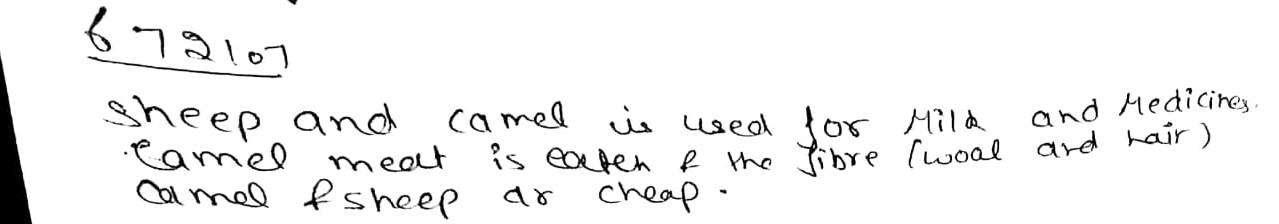 672107
sheep and camel is used for Milk and Medicines.
Camel meat is eaten & the fibre (woal and hair)
Camel & sheep ar cheap.